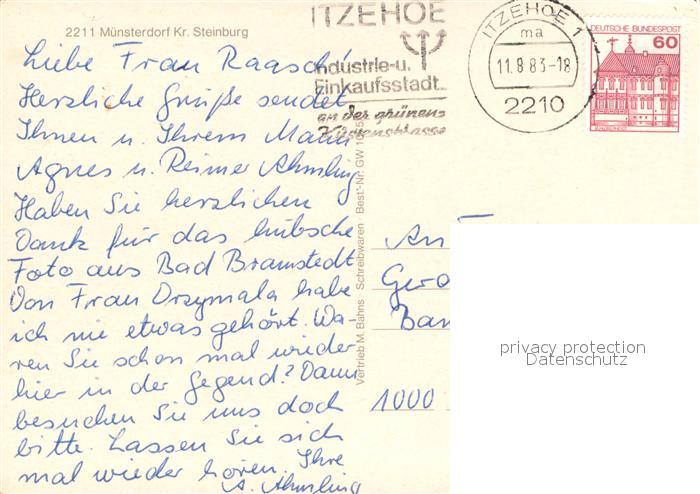 2211 Münsterdorf Kr. Steinburg
Liebe Frau Raasch!
Herzliche Grüße sendet
Ihnen u. Ihrem Mann
Agnes u. Reimer Ahmling
Haben Sie herzlichen
Dank für das hübsche
Foto aus Bad Bramstedt
Von Frau Drzymala habe
ich nie etwas gehört. Wa-
ren Sie schon mal wieder
hier in der Gegend? Dann
besuchen Sie uns doch
bitte. Lassen Sie sich
mal wieder hören. Ihre
A. Ahmling
ITZEHOE
Industrie-u.
Einkaufsstadt
an der grünen
Küstenstrasse
ITZEHOE 1
ma
11.8.83-18
2210
DEUTSCHE BUNDESPOST
60
Vertrieb M. Bahns Schreibwaren · Best.-Nr. GW
An
1000
privacy protection
Datenschutz